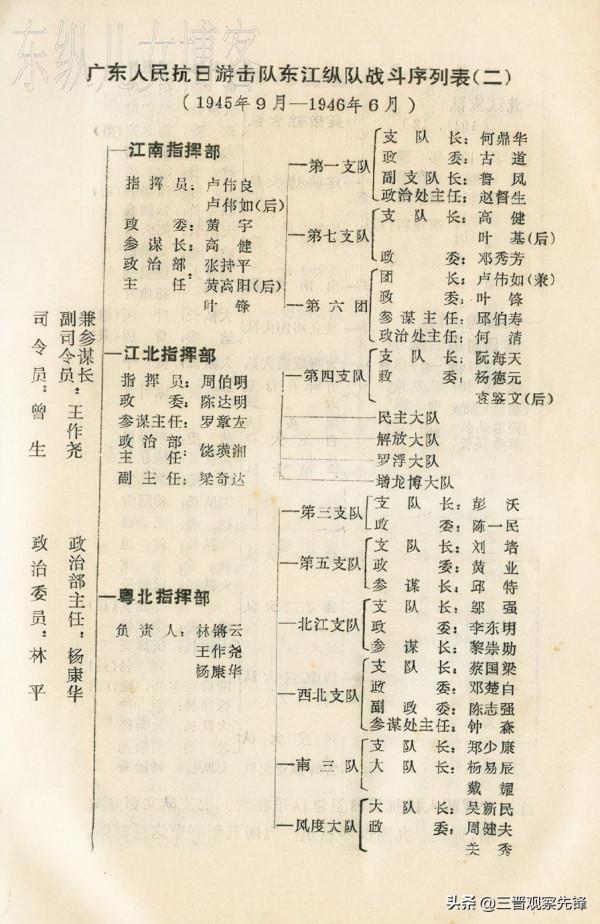 东纵儿女博客
广东人民抗日游击队东江纵队战斗序列表(二)
(1945年9月—1946年6月)
司令员：曾生
副司令员：王作尧
兼参谋长
政治委员：林平
政治部主任：杨康华
江南指挥部
指挥员：卢伟良
卢伟如(后)
政委：黄宇
参谋长：高健
政治部 张持平
主任：黄高阳(后)
叶锋
第一支队
支队长：何鼎华
政委：古道
副支队长：鲁风
政治处主任：赵督生
第七支队
支队长：高健
叶基(后)
政委：邓秀芳
第六团
团长：卢伟如(兼)
政委：叶锋
参谋主任：邱伯寿
政治处主任：何清
江北指挥部
指挥员：周伯明
政委：陈达明
参谋主任：罗章左
政治部
主任：饶璜湘
副主任：梁奇达
第四支队
支队长：阮海天
政委：杨德元
袁鉴文(后)
民主大队
解放大队
罗浮大队
增龙博大队
粤北指挥部
负责人：林锵云
王作尧
杨康华
第三支队
支队长：彭沃
政委：陈一民
第五支队
支队长：刘培
政委：黄业
参谋长：邱特
北江支队
支队长：邬强
政委：李东明
参谋长：黎崇勋
西北支队
支队长：蔡国梁
政委：邓楚白
副政委：陈志强
参谋处主任：钟淼
南三队
支队长：郑少康
大队长：杨易辰
戴耀
风度大队
大队长：吴新民
政委：周健夫
秀
头条 @三晋观察先锋